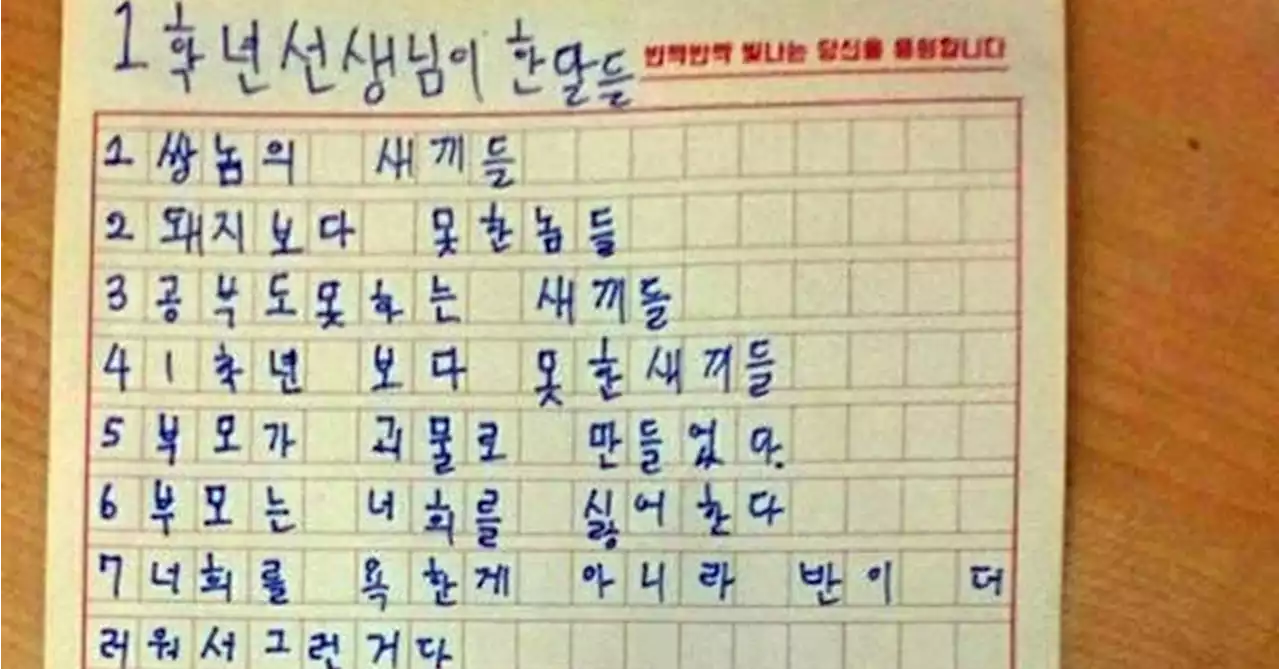 1학년선생님이 한말들
반짝반짝 빛나는 당신을 응원합니다
1 쌍놈의 새끼들
2 돼지보다 못한놈들
3 공부도못하는 새끼들
4 1학년 보다 못한새끼들
5 부모가 괴물로 만들었다.
6 부모는 너희를 싫어한다
7 너희를 욕한게 아니라 반이 더
러워서그런거다